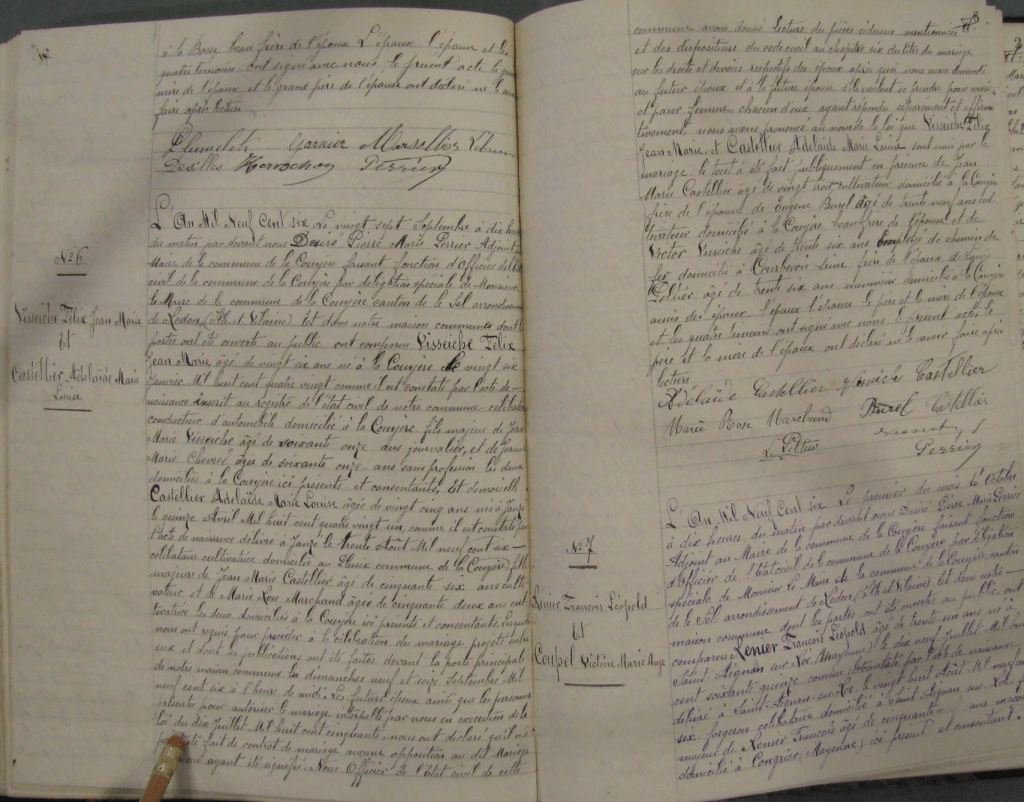 à la Bosse beau frère de l'époux L'époux l'épouse et les
quatre témoins ont signé avec nous le présent acte la grand
mère de l'époux et le grand père de l'épouse ont déclaré ne le savoir
faire après lecture
Plumelet Garnier Marsollier
Desilles Perrier
L'An Mil Neuf Cent six Le vingt sept Septembre à dix heures
du matin par devant nous Désiré Pierre Marie Perrier Adjoint au
Maire de la commune de la Couyère faisant fonction d'Officier de l'état
civil de la commune de la Couyère par délégation spéciale de Monsieur
le Maire de la commune de la Couyère canton de le Sel arrondissement
de Redon, (Ille et Vilaine) Et dans notre maison commune dont les
portes ont été ouverte au public ont comparus Visseiche Félix
Jean Marie âgé de vingt six ans né à la Couyère le vingt six
Janvier Mil huit cent quatre vingt comme il est constaté par l'acte de
naissance inscrit au registre de l'état civil de notre commune célibataire
conducteur d'automobile domicilié à la Couyère fils majeur de Jean
Marie Visseiche âgé de soixante onze ans journalier, et de Jeanne
Marie Chevrel âgée de soixante onze ans sans profession les deux
domiciliés à la Couyère ici présents et consentants, Et demoiselle
Castellier Adélaïde Marie Louise âgée de vingt cinq ans née à Janzé
le quinze Avril Mil huit cent quatre vingt un, comme il est constaté par
l'acte de naissance délivré à Janzé le trente Août Mil neuf cent six
célibataire cultivatrice domiciliée au Plessix commune de la Couyère fille
majeure de Jean Marie Castellier âgé de cinquante six ans culti
vateur, et de Marie Rose Marchand âgée de cinquante deux ans cul
tivatrice les deux domiciliés à la Couyère ici présents et consentants. Lesquels
nous ont requis pour procéder à la célébration du mariage projeté entre
eux et dont les publications ont été faites devant la porte principale
de notre maison commune les dimanches neuf et seize Septembre Mil
neuf cent six à l'heure de midi. Les futurs époux ainsi que les personnes
présente pour autoriser le mariage interpellé par nous en exécution de la
loi du dix Juillet Mil huit cent cinquante, nous ont déclaré qu'il n'a
fait de contrat de mariage aucune opposition au dit Mariage
ayant été signifié. Nous Officier de l'état civil de cette
No 6
Visseiche Félix Jean Marie
Et
Castellier Adélaïde Marie
Louise
8
commune avons donné lecture des pièces cidessus mentionnées
et des dispositions du code civil au chapitre six du titre du mariage
sur les droits et devoirs respectifs des époux après quoi nous avons demandé
au futur époux et à la future épouse s'ils veulent se prendre pour mari
et pour femme chacun d'eux ayant répondu séparément et affirma
tivement, nous avons prononcé au nom de la loi que Visseiche Félix
Jean Marie et Castellier Adélaïde Marie Louise sont unis par le
mariage le tout à été fait publiquement en présence de Jean
Marie Castellier âgé de vingt trois cultivateur domicilié à la Couyère
frère de l'épouse de Eugène Burel âgé de trente neuf ans cul
tivateur domicilié à la Couyère beau frère de l'épouse et de
Victor Visseiche âgé de trente six ans employé de chemin de
fer domicilié à Courbevoie Seine frère de l'époux et de
Peltier âgé de trente six ans menuisier domicilié à la Couyère
amis des époux l'époux l'épouse le père et la mère de l'épouse
et les quatre témoins ont signé avec nous le présent acte, le
père et la mère de l'époux ont déclaré ne le savoir faire après
lecture
Adélaïde Castellier Visseiche Castellier
Marie Rose Marchand Burel Castellier
Peltier
Perrier
L'An Mil Neuf Cent six Le premier du mois de Octobre
à dix heures, du matin par devant nous Désiré Pierre Marie Perrier
Adjoint au Maire de la commune de la Couyère faisant fonctions
d'Officier de l'état civil de la commune de la Couyère par délégation
spéciale de Monsieur le Maire de la commune de la Couyère, canton
de le Sel arrondissement de Redon, (Ille et Vilaine) Et dans notre
maison commune dont les portes ont été ouvertes au public, ont
comparus Renier François Léopold âgé de trente un ans né à
Saint Aignan sur Roë (Mayenne) le dix neuf Juillet Mil huit
cent soixante quinze comme constaté par l'acte de naissance,
délivré à Saint-Aignan-sur-Roë le vingt huit Août Mil neuf cent
six forgeron célibataire domicilié à Saint Aignan sur Roë fils
majeur de Renier François âgé de cinquante ans
domicilié à Congrier (Mayenne) ici présent et consentant.
No 7
Renier François Léopold
Et
Coupel Victoire Marie Ange